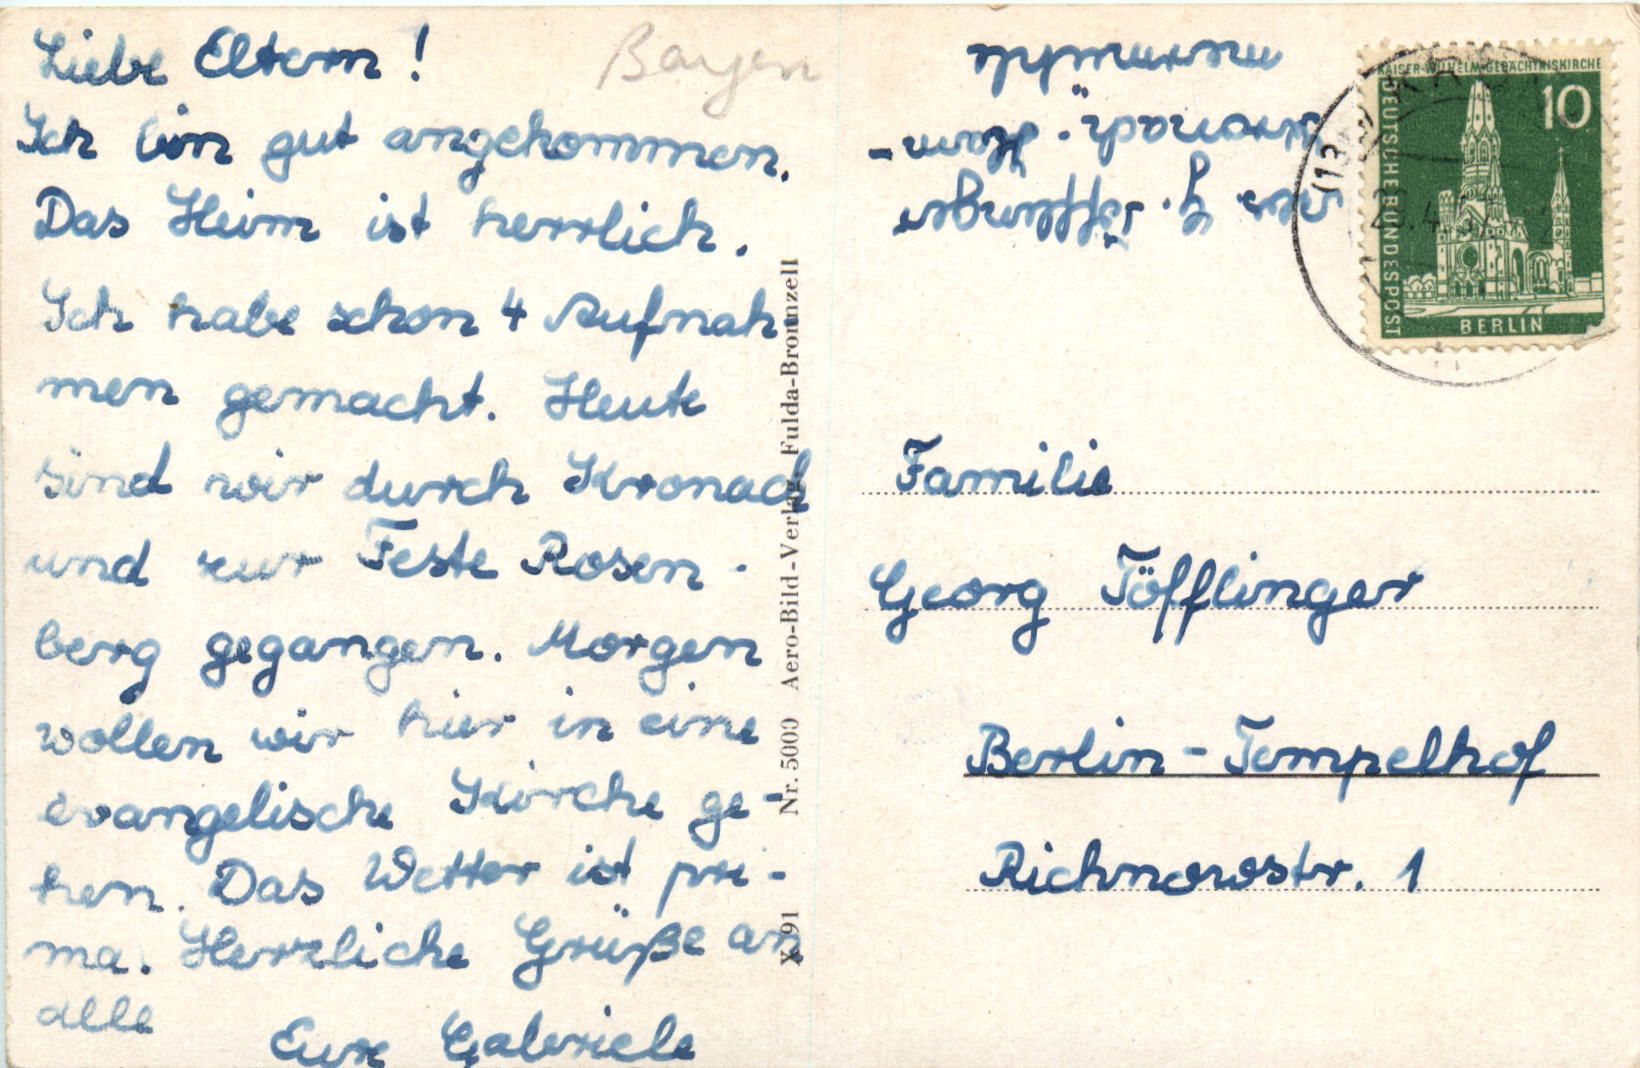 Liebe Eltern!
Ich bin gut angekommen.
Das Heim ist herrlich.
Ich habe schon 4 Aufnah-
men gemacht. Heute
sind wir durch Kronach
und zur Feste Rosen-
berg gegangen. Morgen
wollen wir hier in eine
evangelische Kirche ge-
hen. Das Wetter ist pri-
ma. Herzliche Grüße an
alle
Eure Gabriele
Bayern
Nr. 5000 Aero-Bild-Verlag Fulda-Bronnzell
G. Töfflinger
Kronach. Ham-
mermühle
KAISER-WILHELM-GEDÄCHTNISKIRCHE
10
DEUTSCHE BUNDESPOST
BERLIN
Familie
Georg Töfflinger
Berlin-Tempelhof
Richnowstr. 1